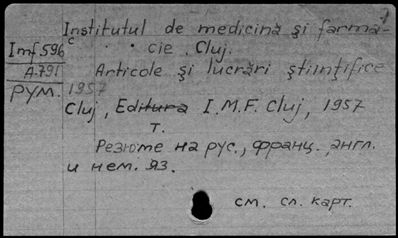 Institutul de medicină şi farma-
Imf.596 c cie . Cluj.
A.791 Articole şi lucrări ştiinţifice
рум. 1957
Cluj, Editura I.M.F. Cluj, 1957
т.
Резюме на рус., франц., англ.
и нем. яз.
см. сл. карт.